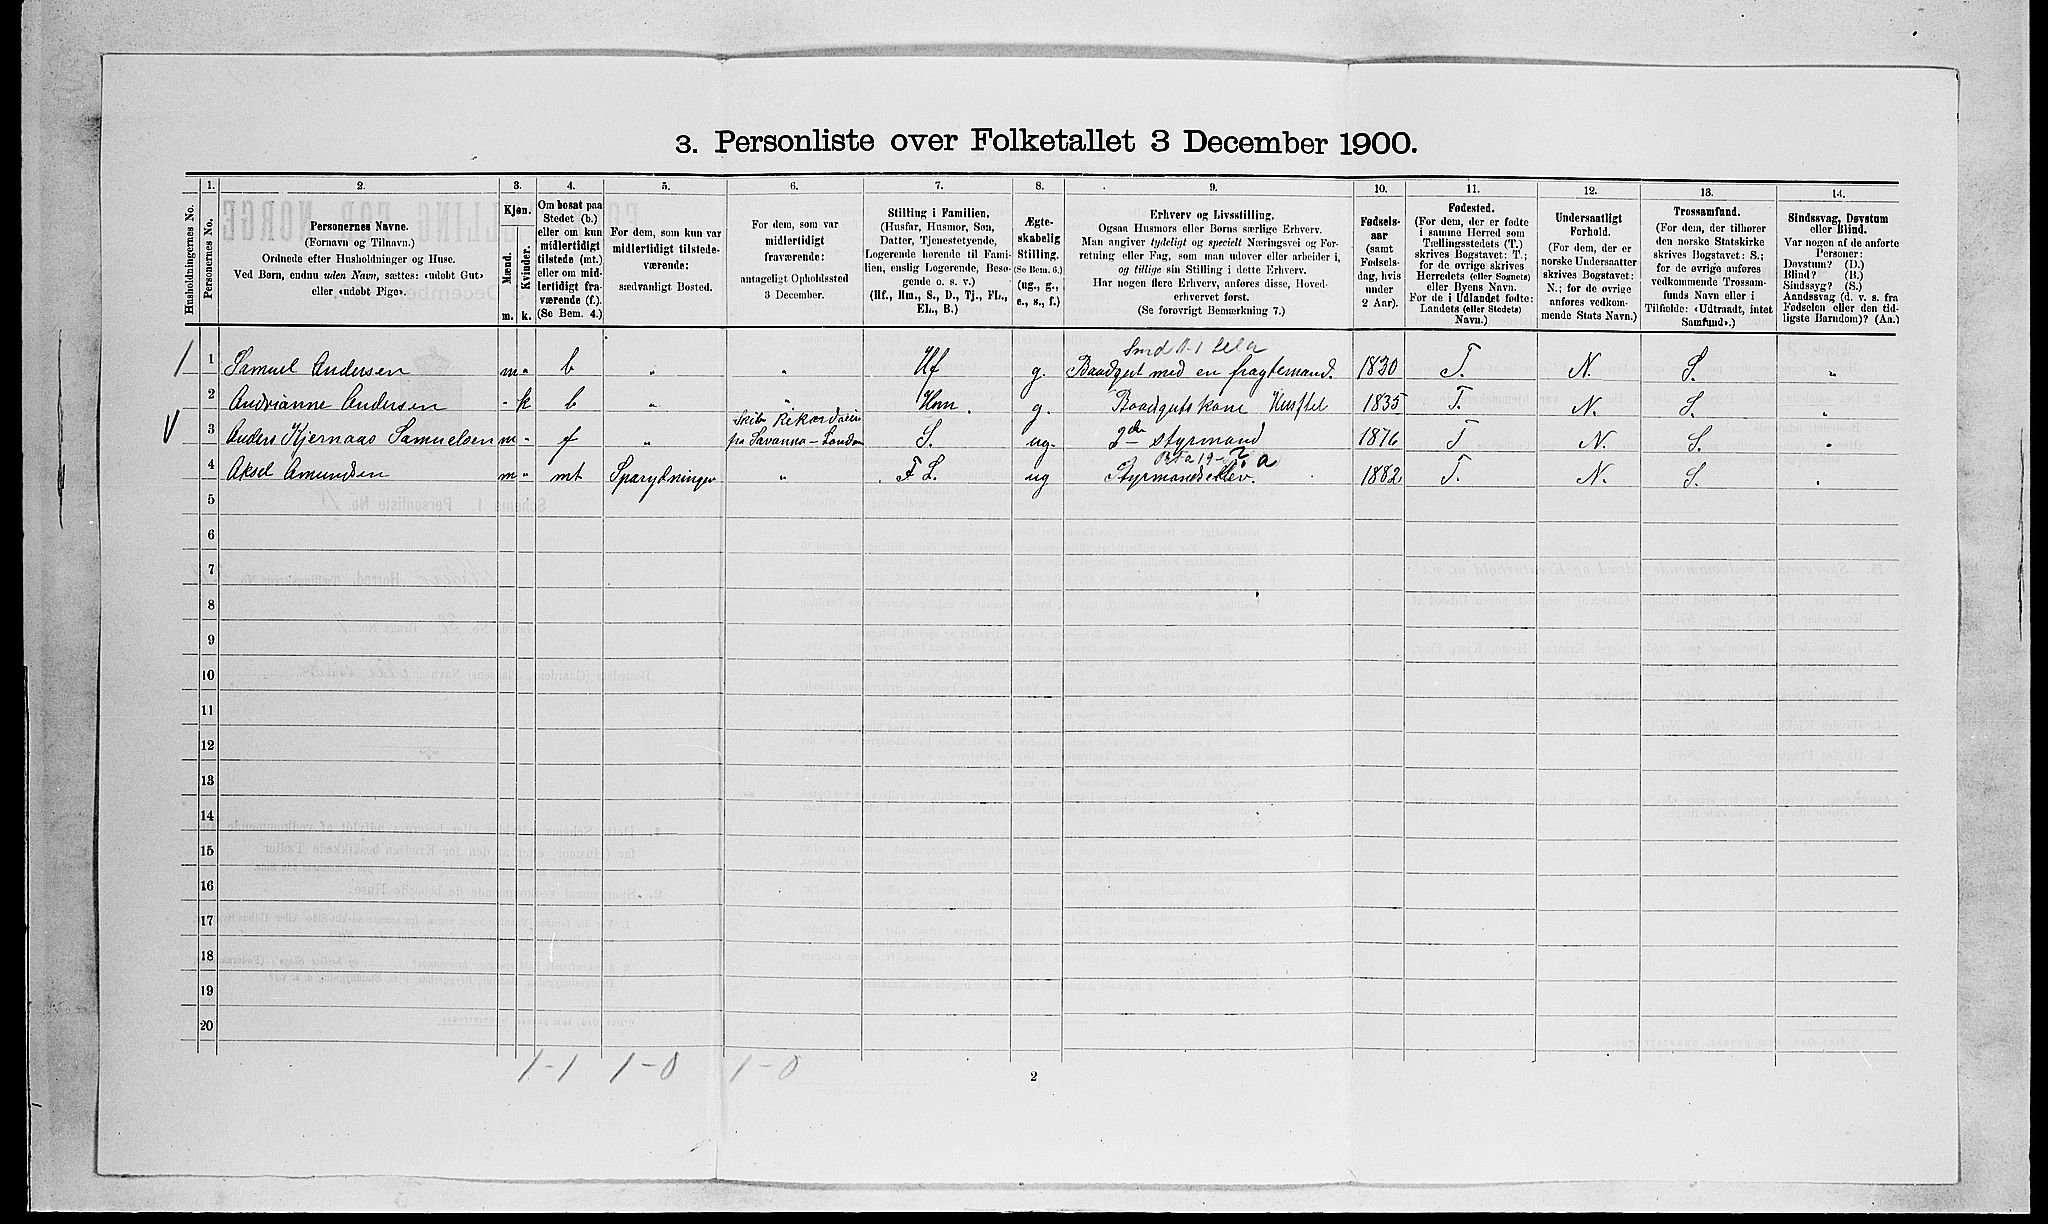 3. Personliste over Folketallet 3 December 1900.
1. 2. 3. 4. 5. 6. 7. 8. 9. 10. 11. 12. 13. 14.
Husholdningernes No.
Personernes No.
Personernes Navne.
(Fornavn og Tilnavn.)
Ordnede efter Husholdninger og Huse.
Ved Børn, endnu uden Navn, sættes: «udøbt Gut»
eller «udøbt Pige».
Kjøn.
Mænd. Kvinder.
m. k.
Om bosat paa
Stedet (b.)
eller om kun
midlertidigt
tilstede (mt.)
eller om mid-
lertidigt fra-
værende (f.)
(Se Bem. 4.)
For dem, som kun var
midlertidigt tilstede-
værende:
sædvanligt Bosted.
For dem, som var
midlertidigt
fraværende:
antageligt Opholdssted
3 December.
Stilling i Familien.
(Husfar, Husmor, Søn,
Datter, Tjenestetyende,
Logerende hørende til Fami-
lien, enslig Logerende, Besø-
gende o. s. v.)
(Hf., Hm., S., D., Tj., FL.,
EL., B.)
Ægte-
skabelig
Stilling.
(Se Bem. 6.)
(ug., g.,
e., s., f.)
Erhverv og Livsstilling.
Ogsaa Husmors eller Børns særlige Erhverv.
Man angiver tydeligt og specielt Næringsvei og For-
retning eller Fag, som man udøver eller arbeider i,
og tillige sin Stilling i dette Erhverv.
Har nogen flere Erhverv, anføres disse, Hoved-
erhvervet først.
(Se forøvrigt Bemærkning 7.)
Fødsels-
aar
(samt
Fødsels-
dag, hvis
under
2 Aar).
Fødested.
(For dem, der er fødte
i samme Herred som
Tællingsstedets (T.)
skrives Bogstavet: T.;
for de øvrige skrives
Herredets (eller Sognets)
eller Byens Navn.
For de i Udlandet fødte:
Landets (eller Stedets)
Navn.)
Undersaatligt
Forhold.
(For dem, der er
norske Undersaatter
skrives Bogstavet:
N.; for de øvrige
anføres vedkom-
mende Stats Navn.)
Trossamfund.
(For dem, der tilhører
den norske Statskirke
skrives Bogstavet: S.;
for de øvrige anføres
vedkommende Trossam-
funds Navn eller i
Tilfælde: «Udtraadt, intet
Samfund».)
Sindssvag, Døvstum
eller Blind.
Var nogen af de anførte
Personer:
Døvstum? (D.)
Blind? (B.)
Sindssyg? (S.)
Aandssvag (d. v. s. fra
Fødselen eller den tid-
ligste Barndom)? (Aa.)
1 Samuel Andersen m " b " " Hf g. Baadgut med en fragtemand. 1830 T. N. S. "
2 Andrianne Andersen - k b " " Hm. g. Baadgutskone Husstel 1835 T. N. S. "
3 Anders Kjernaas Samuelsen m " f " fra Savanna - London S. ug. 2den styrmand 1876 T N. S. "
4 Aksel Amundsen m " mt " F L. ug Styrmandselev. 1882 T. N. S. "
5
6
7
8
9
10
11
12
13
14
15
16
17
18
19
20
1-1 1-0 1-0
2